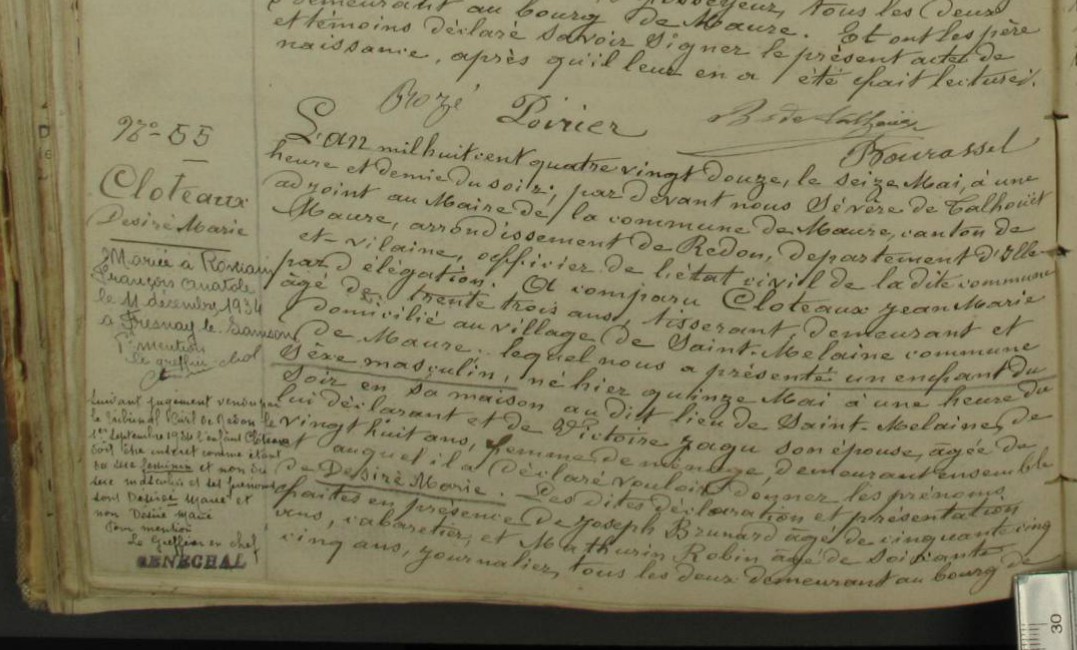 demeurant au bourg de Maure. tous les deux
et témoins déclaré savoir signer. Et ont les père
le présent acte de
naissance, après qu'il leur en a été fait lecture.
Rozé Poirier
Bourassel
No 55
Cloteaux
Desiré Marie
Mariée à
François Anatole
le 11 décembre 1934
à Fresnay le Samson
Pr mention
le greffier chef
Suivant jugement rendu par
le Tribunal Civil de Redon le
1er septembre 1934 l'enfant Cloteaux
doit être indiqué comme étant
du sexe féminin et non du
sexe masculin et ses prénoms
sont Désirée Marie et
non Désiré Marie
Pour mention
Le Greffier en chef
SENECHAL
L'an mil huit cent quatre vingt douze, le seize Mai, à une
heure et demie du soir; par devant nous Sévère de Talhouët
adjoint au Maire de la commune de Maure, canton de
Maure, arrondissement de Redon, département d'Ille-
et-vilaine, officier de l'état civil de la dite commune
par délégation. A comparu Cloteaux Jean Marie
âgé de trente trois ans, tisserant, demeurant et
domicilié au village de Saint-Melaine commune
de Maure. lequel nous a présenté un enfant du
sexe masculin, né hier quinze Mai à une heure du
soir en sa maison au dit lieu de Saint-Melaine, de
lui déclarant et de Victoire Jagu son épouse, âgée de
vingt huit ans, femme de ménage, demeurant ensemble
et auquel il a déclaré vouloir donner les prénoms
de Desiré Marie. Les dites déclaration et présentation
faites en présence de Joseph Brunard âgé de cinquante cinq
ans, cabaretier, et Mathurin Robin âgé de soixante
cinq ans, journalier, tous les deux demeurant au bourg de